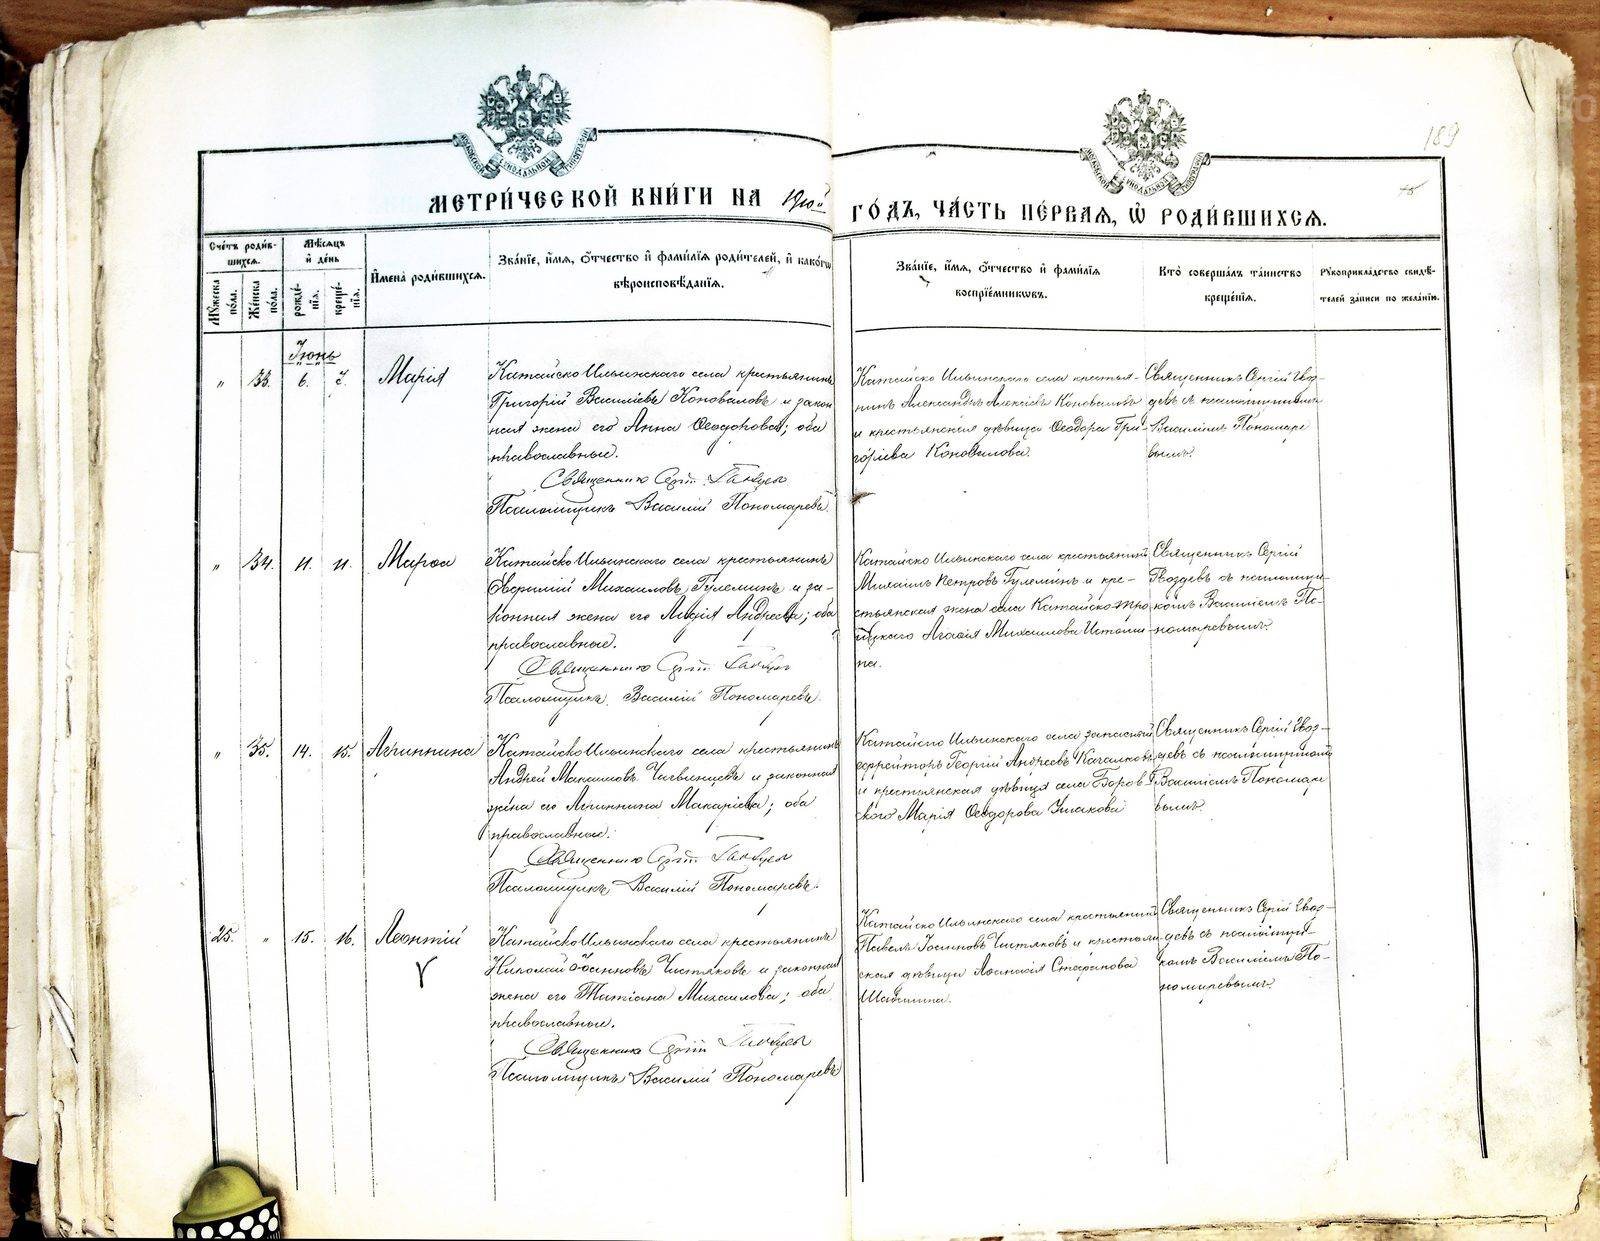 189
МОСКОВСКОЙ СѴНОДАЛЬНОЙ ТИПОГРАФІИ
МОСКОВСКОЙ СѴНОДАЛЬНОЙ ТИПОГРАФІИ
МЕТРИ́ЧЕСКОЙ КНИ́ГИ НА 1910й ГО́ДЪ, ЧА́СТЬ ПЕ́РВАѦ, Ѡ҆ РОДИ́ВШИХСѦ.
Сче́тъ роди́в-
шихсѧ.
Мѣ́сѧцъ
и҆ де́нь
Мꙋ́жеска по́ла.
Же́нска по́ла.
рожде́-
нїѧ.
креще́-
нїѧ.
И҆мена̀ роди́вшихсѧ.
Зва́нїе, и҆́мѧ, ѻ҆́тчество и҆ фами́лїѧ роди́телей, и҆ какѡ́гѡ
вѣроисповѣ́данїѧ.
Зва́нїе, и҆́мѧ, ѻ҆́тчество и҆ фами́лїѧ
воспрїе́мникѡвъ.
Кто̀ соверша́лъ та́инство
креще́нїѧ.
Рꙋкоприкла́дство свидѣ́-
телей за́писи по жела́нїю.
Іюнь
" 33. 6. 7. Марія
Катайско Ильинскаго села крестьянинъ
Григорій Василіевъ Коноваловъ и закон
ная жена его Анна Ѳеодорова; оба
православные.
Священникъ Сергій Гвоздевъ
Псаломщикъ Василій Пономаревъ.
Катайско Ильинскаго села крестья-
нинъ Александръ Алексіевъ Коноваловъ
и крестьянская дѣвица Ѳеодора Гри-
горіева Коновалова.
Священникъ Сергій Гвоз-
девъ съ псаломщикомъ
Василіемъ Пономаре
вымъ.
" 34. 11. 11. Марѳа
Катайско Ильинскаго села крестьянинъ
Евфимій Михаиловъ Гулеминъ и за-
конная жена его Лидія Андреева; оба
православные.
Священникъ Сергій Гвоздевъ
Псаломщикъ Василій Пономаревъ.
Катайско Ильинскаго села крестьянинъ
Михаилъ Петровъ Гулеминъ и кре-
стьянская жена села Катайско Тро
ицкаго Агаѳія Михаилова Истоми-
на.
Священникъ Сергій
Гвоздевъ съ псаломщи-
комъ Василіемъ По-
номаревымъ.
" 35. 14. 15. Агриппина
Катайско Ильинскаго села крестьянинъ
Андрей Максимовъ и законная
жена его Агриппина Макаріева; оба
православные.
Священникъ Сергій Гвоздевъ
Псаломщикъ Василій Пономаревъ.
Катайско Ильинскаго села запасный
ефрейторъ Георгій Андреевъ Качалковъ
и крестьянская дѣвица села Боров-
скаго Марія Ѳеодорова Ушакова
Священникъ Сергій Гвоз-
девъ съ псаломщикомъ
Василіемъ Пономаре
вымъ.
25. " 15. 16. Леонтій
Катайско Ильинскаго села крестьянинъ
Николай Іоанновъ Чистяковъ и законная
жена его Татіана Михаилова; оба
православные.
Священникъ Сергій Гвоздевъ
Псаломщикъ Василій Пономаревъ
Катайско Ильинскаго села крестьянинъ
Павелъ Іоанновъ Чистяковъ и крестьян
ская дѣвица Аѳанасія Стефанова
Шабунина.
Священникъ Сергій Гвоз-
девъ съ псаломщи-
комъ Василіемъ По-
номаревымъ.